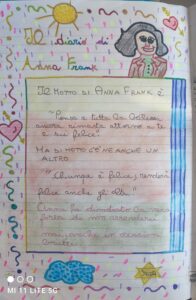 Il diario di
Anna Frank
IL MOTTO DI ANNA FRANK È
"Pensa a tutta la bellezza
ancora rimasta attorno a te
e sii felice"
MA DI MOTTO CE N'È ANCHE UN
ALTRO
"Chiunque è felice, renderà
felice anche gli altri"
Anna ha dimostrato
forza di non arrendersi
MI 11 LITE 5G